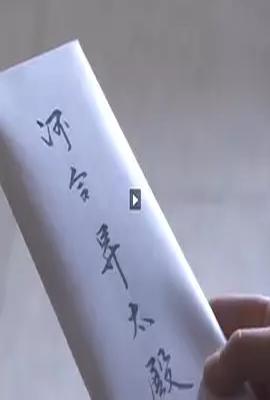 河合昇太殿